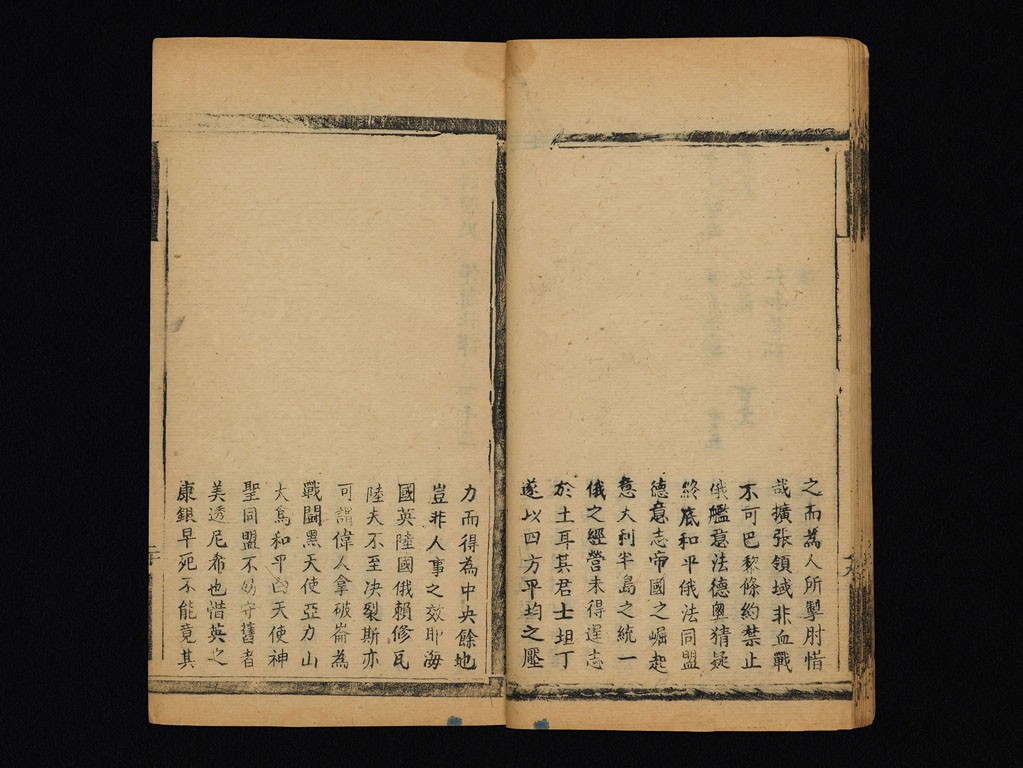 之而為人所掣肘惜
哉擴張領域非血戰
不可巴黎條約禁止
俄艦意法德奧猜疑
終底和平俄法同盟
德意志帝國之崛起
意大利半島之統一
俄之經營未得逞志
於土耳其君士坦丁
遂以四方平均之壓
力而得為中央餘地
豈非人事之效耶海
國英陸國俄賴修瓦
陸夫不至决裂斯亦
可謂偉人拿破崙為
戰鬪黑天使亞力山
大為和平白天使神
聖同盟不妨守舊者
美透尼希也惜英之
康銀早死不能竟其